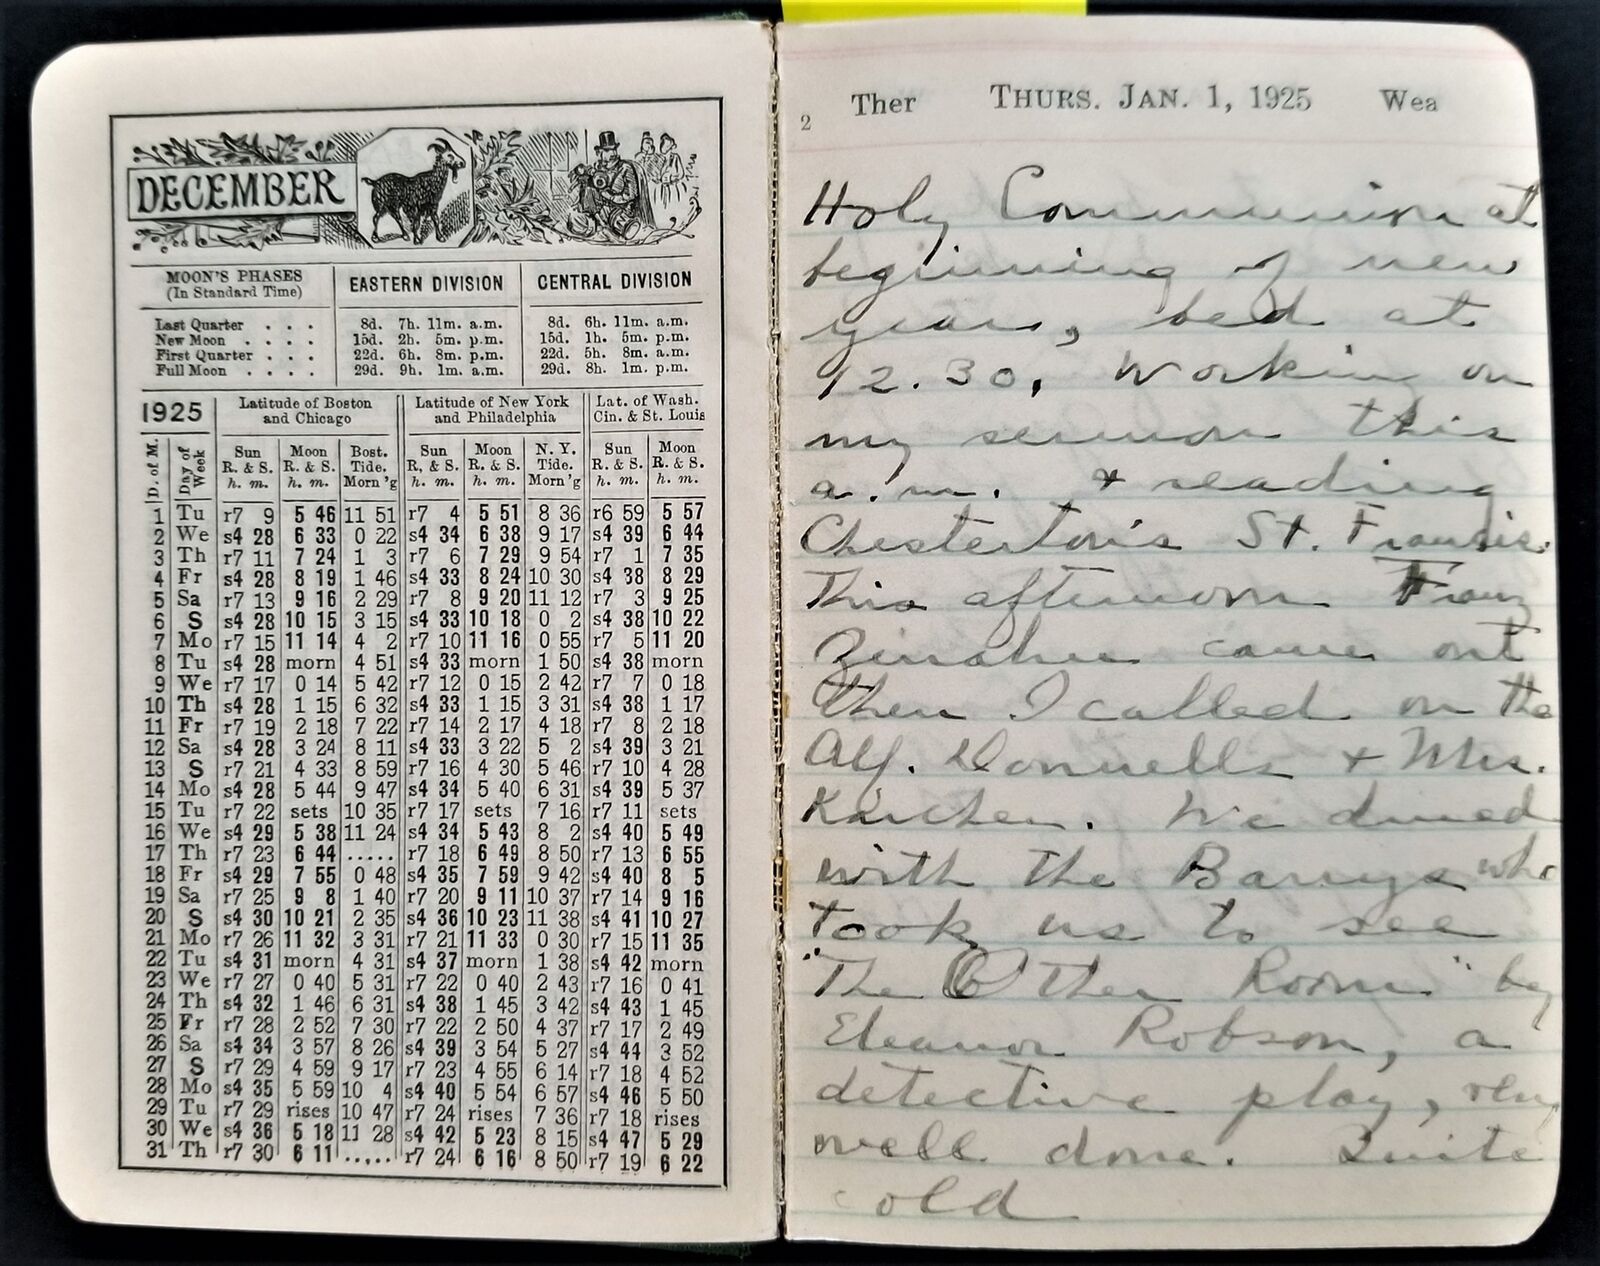 DECEMBER
MOON'S PHASES
(In Standard Time)
EASTERN DIVISION
CENTRAL DIVISION
Last Quarter . . . 8d. 7h. 11m. a.m. 8d. 6h. 11m. a.m.
New Moon . . . . 15d. 2h. 5m. p.m. 15d. 1h. 5m. p.m.
First Quarter . . . 22d. 6h. 8m. a.m. 22d. 5h. 8m. a.m.
Full Moon . . . . 29d. 9h. 1m. a.m. 29d. 8h. 1m. p.m.
1925
Latitude of Boston and Chicago
Latitude of New York and Philadelphia
Lat. of Wash. Cin. & St. Louis
D. of M. Day of Week Sun R. & S. h. m. Moon R. & S. h. m. Bost. Tide. Morn'g Sun R. & S. h. m. Moon R. & S. h. m. N. Y. Tide. Morn'g Sun R. & S. h. m. Moon R. & S. h. m.
1 Tu r7 9 5 46 11 51 r7 4 5 51 8 36 r6 59 5 57
2 We s4 28 6 33 0 22 s4 34 6 38 9 17 s4 39 6 44
3 Th r7 11 7 24 1 3 r7 6 7 29 9 54 r7 1 7 35
4 Fr s4 28 8 19 1 46 s4 33 8 24 10 30 s4 38 8 29
5 Sa r7 13 9 16 2 29 r7 8 9 20 11 12 r7 3 9 25
6 S s4 28 10 15 3 15 s4 33 10 18 0 2 s4 38 10 22
7 Mo r7 15 11 14 4 2 r7 10 11 16 0 55 r7 5 11 20
8 Tu s4 28 morn 4 51 s4 33 morn 1 50 s4 38 morn
9 We r7 17 0 14 5 42 r7 12 0 15 2 42 r7 7 0 18
10 Th s4 28 1 15 6 32 s4 33 1 15 3 31 s4 38 1 17
11 Fr r7 19 2 18 7 22 r7 14 2 17 4 18 r7 8 2 18
12 Sa s4 28 3 24 8 11 s4 33 3 22 5 2 s4 39 3 21
13 S r7 21 4 33 8 59 r7 16 4 30 5 46 r7 10 4 28
14 Mo s4 28 5 44 9 47 s4 34 5 40 6 31 s4 39 5 37
15 Tu r7 22 sets 10 35 r7 17 sets 7 16 r7 11 sets
16 We s4 29 5 38 11 24 s4 34 5 43 8 2 s4 40 5 49
17 Th r7 23 6 44 ..... r7 18 6 49 8 50 r7 13 6 55
18 Fr s4 29 7 55 0 48 s4 35 7 59 9 42 s4 40 8 5
19 Sa r7 25 9 8 1 40 r7 20 9 11 10 37 r7 14 9 16
20 S s4 30 10 21 2 35 s4 36 10 23 11 38 s4 41 10 27
21 Mo r7 26 11 32 3 31 r7 21 11 33 0 30 r7 15 11 35
22 Tu s4 31 morn 4 31 s4 37 morn 1 38 s4 42 morn
23 We r7 27 0 40 5 31 r7 22 0 40 2 43 r7 16 0 41
24 Th s4 32 1 46 6 31 s4 38 1 45 3 42 s4 43 1 45
25 Fr r7 28 2 52 7 30 r7 22 2 50 4 37 r7 17 2 49
26 Sa s4 34 3 57 8 26 s4 39 3 54 5 27 s4 44 3 52
27 S r7 29 4 59 9 17 r7 23 4 55 6 14 r7 18 4 52
28 Mo s4 35 5 59 10 4 s4 40 5 54 6 57 s4 46 5 50
29 Tu r7 29 rises 10 47 r7 24 rises 7 36 r7 18 rises
30 We s4 36 5 18 11 28 s4 42 5 23 8 15 s4 47 5 29
31 Th r7 30 6 11 ..... r7 24 6 16 8 50 r7 19 6 22
2 Ther THURS. JAN. 1, 1925 Wea
Holy Communion at
beginning of new
year, bed at
12.30. Working on
my sermon this
a.m. & reading
Chesterton's St. Francis.
This afternoon Franz
came out
Then I called on the
Alf. Donnells & Mrs.
Karcher. We dined
with the Barrys who
took us to see
"The Other Room" by
Eleanor Robson, a
detective play, very
well done. Quite
cold